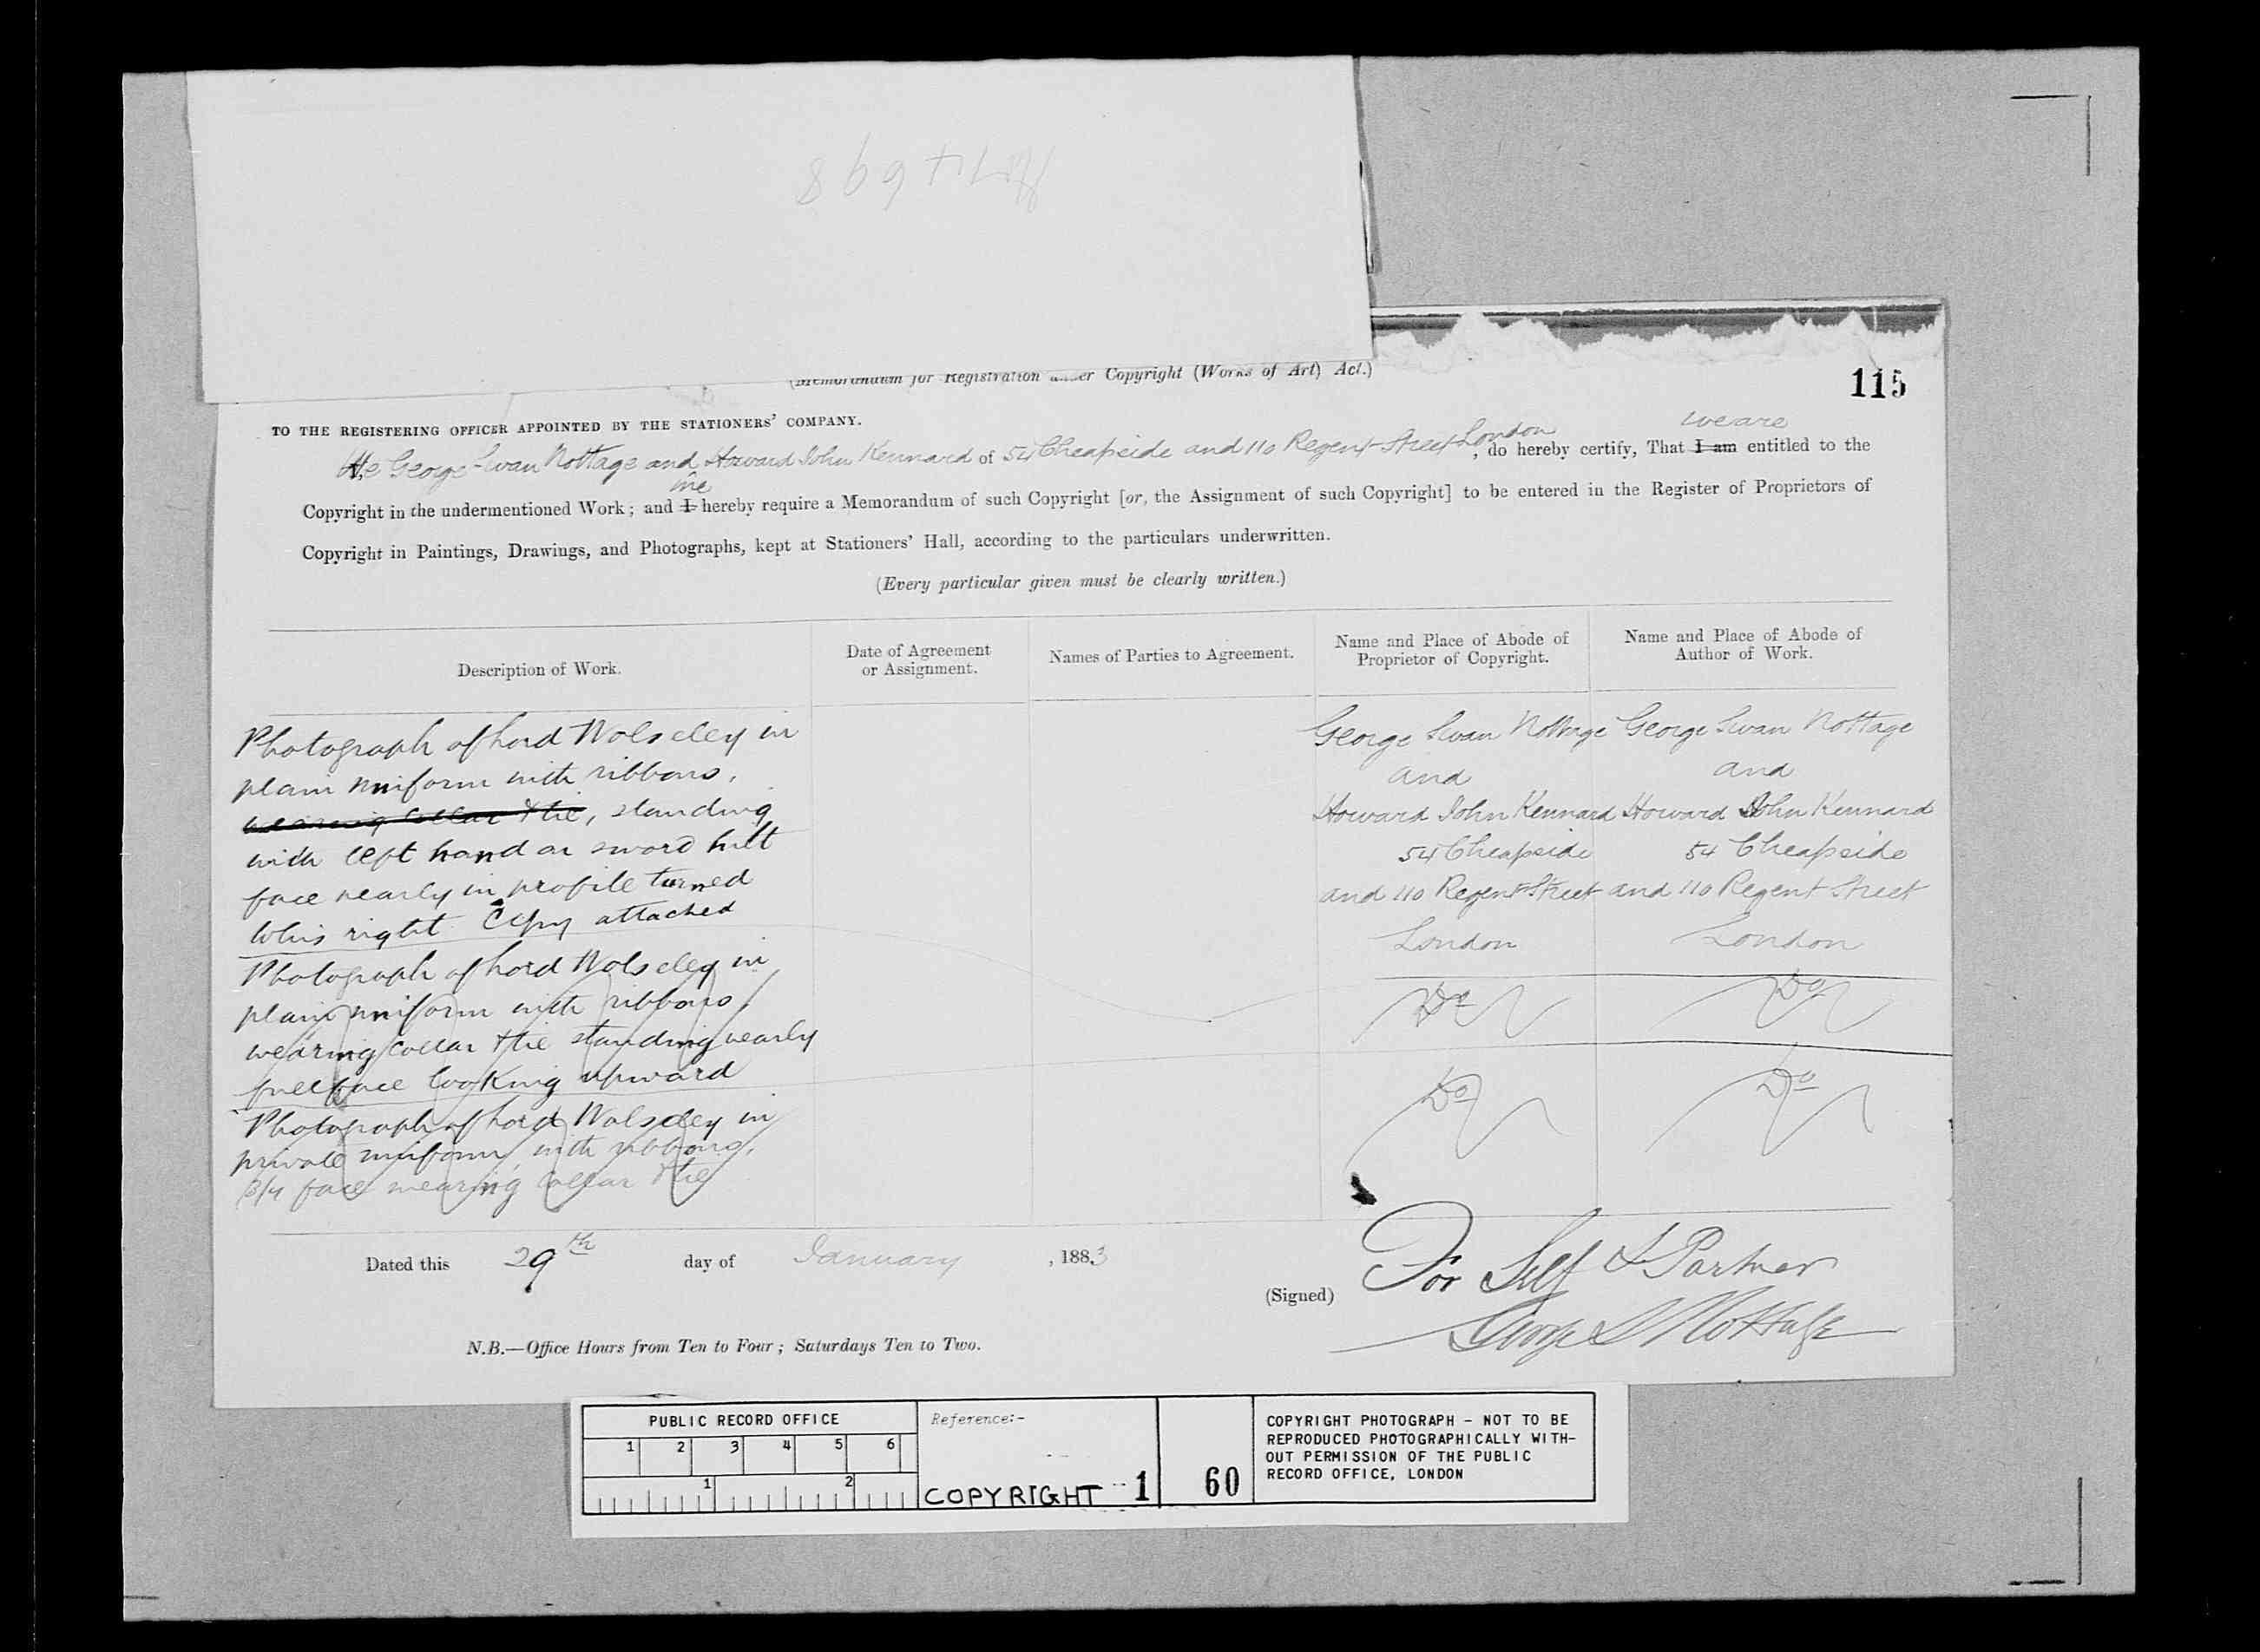 (Memorandum for Registration under Copyright (Works of Art) Act.)
115
TO THE REGISTERING OFFICER APPOINTED BY THE STATIONERS' COMPANY.
we are
We George Swan Nottage and Howard John Kennard of 54 Cheapside and 110 Regent Street London, do hereby certify, That I am entitled to the
we
Copyright in the undermentioned Work; and I hereby require a Memorandum of such Copyright [or, the Assignment of such Copyright] to be entered in the Register of Proprietors of
Copyright in Paintings, Drawings, and Photographs, kept at Stationers' Hall, according to the particulars underwritten.
(Every particular given must be clearly written.)
Description of Work.
Date of Agreement
or Assignment.
Names of Parties to Agreement.
Name and Place of Abode of
Proprietor of Copyright.
Name and Place of Abode of
Author of Work.
Photograph of Lord Wolseley in
plain uniform with ribbons,
wearing collar & tie, standing
with left hand on sword hilt
face nearly in profile turned
to his right. Copy attached
Photograph of Lord Wolseley in
plain uniform with ribbons,
wearing collar & tie standing nearly
full face looking upward
Photograph of Lord Wolseley in
private uniform, with ribbons,
3/4 face wearing collar & tie
George Swan Nottage
and
Howard John Kennard
54 Cheapside
and 110 Regent Street
London
Do
Do
George Swan Nottage
and
Howard John Kennard
54 Cheapside
and 110 Regent Street
London
Do
Do
Dated this 29th day of January, 1883
(Signed) For Self & Partner
George S Nottage
N.B.—Office Hours from Ten to Four; Saturdays Ten to Two.
PUBLIC RECORD OFFICE
1 2 3 4 5 6
1 2
Reference:-
COPYRIGHT 1
60
COPYRIGHT PHOTOGRAPH - NOT TO BE
REPRODUCED PHOTOGRAPHICALLY WITH-
OUT PERMISSION OF THE PUBLIC
RECORD OFFICE, LONDON